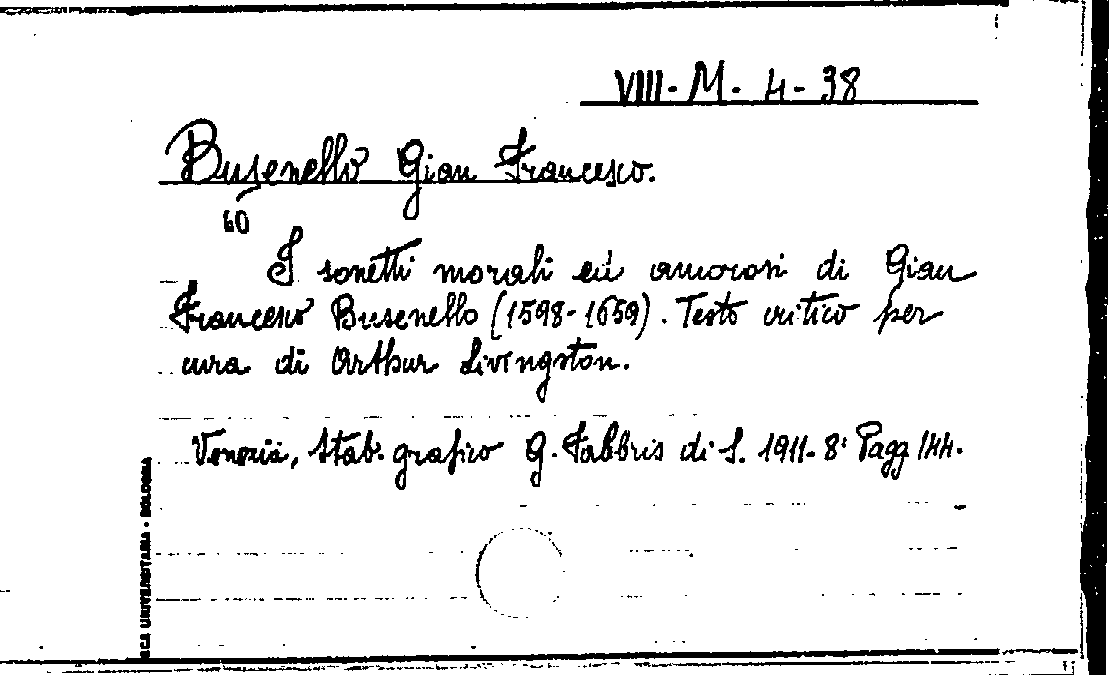 VIII - M - 4 - 38
Busenello Gian Francesco.
60
I sonetti morali ed amorosi di Gian
Francesco Busenello (1598-1659). Testo critico per
cura di Arthur Livingston.
Venezia, Stab. grafico G. Fabbris di S. 1911. 8° Pagg 144.
BCA UNIVERSITARIA - BOLOGNA